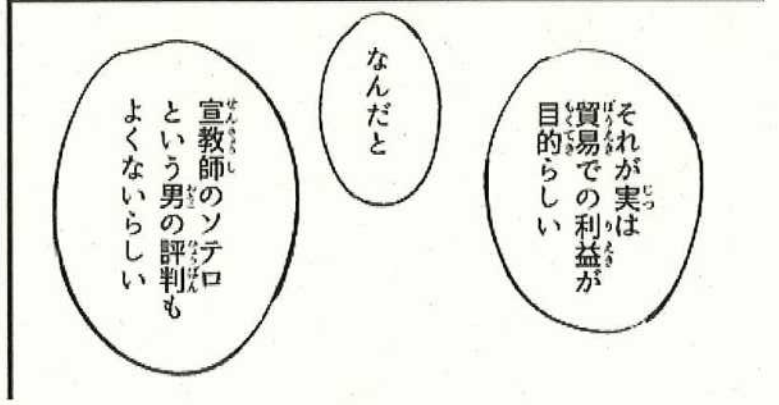 それが実は
貿易での利益が
目的らしい
なんだと
宣教師のソテロ
という男の評判も
よくないらしい